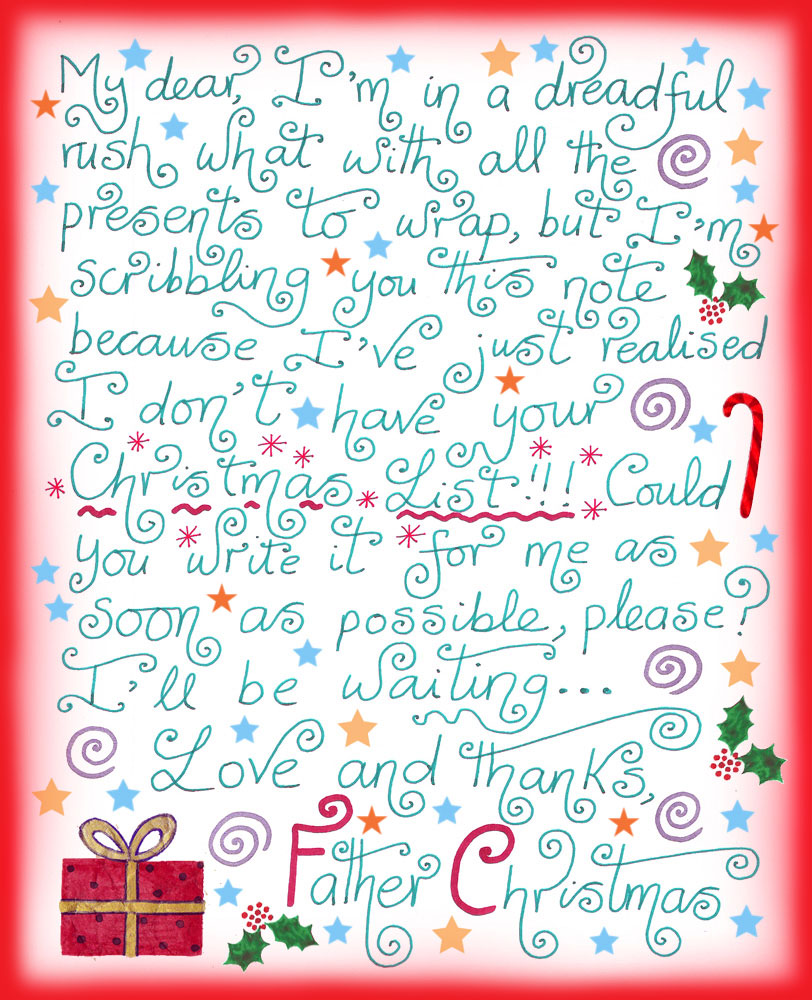 My dear, I'm in a dreadful
rush what with all the
presents to wrap, but I'm
scribbling you this note
because I've just realised
I don't have your
Christmas List!!! Could
you write it for me as
soon as possible, please?
I'll be waiting...
Love and thanks,
Father Christmas